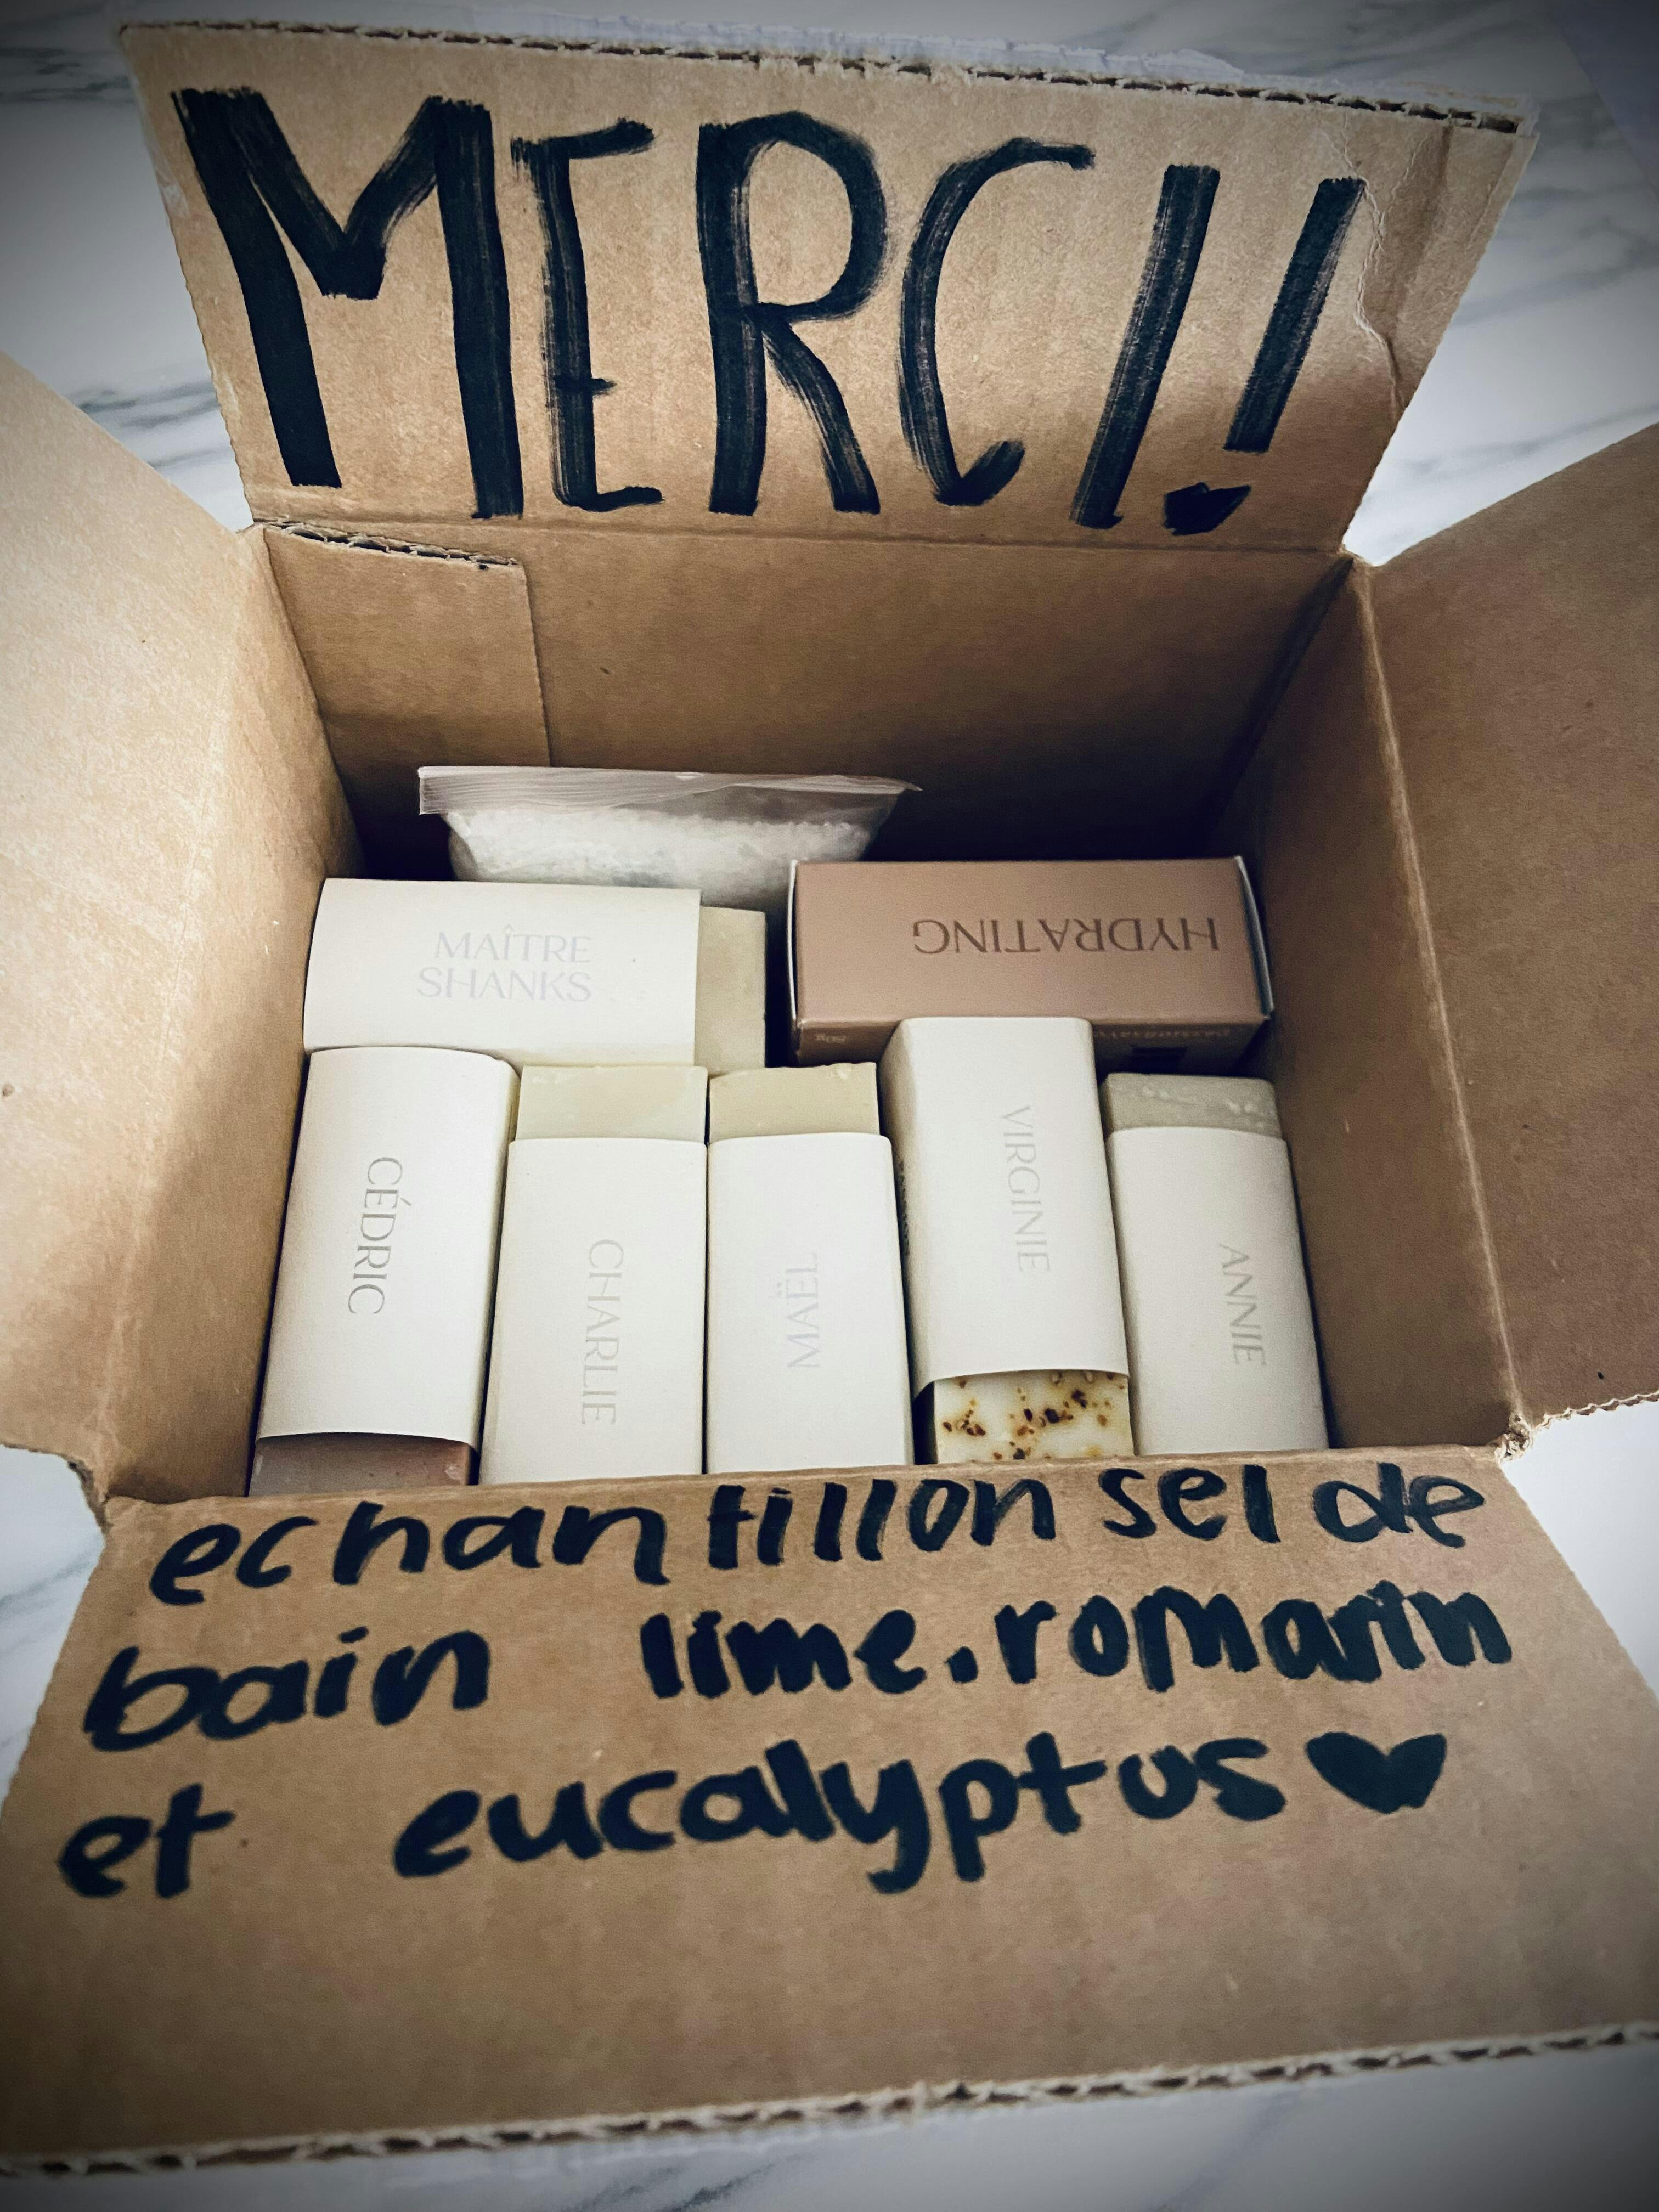 MERCI!
MAÎTRE
SHANKS
HYDRATING
80g
CÉDRIC
CHARLIE
MAËL
VIRGINIE
ANNIE
echantillon sel de
bain lime.romarin
et eucalyptus